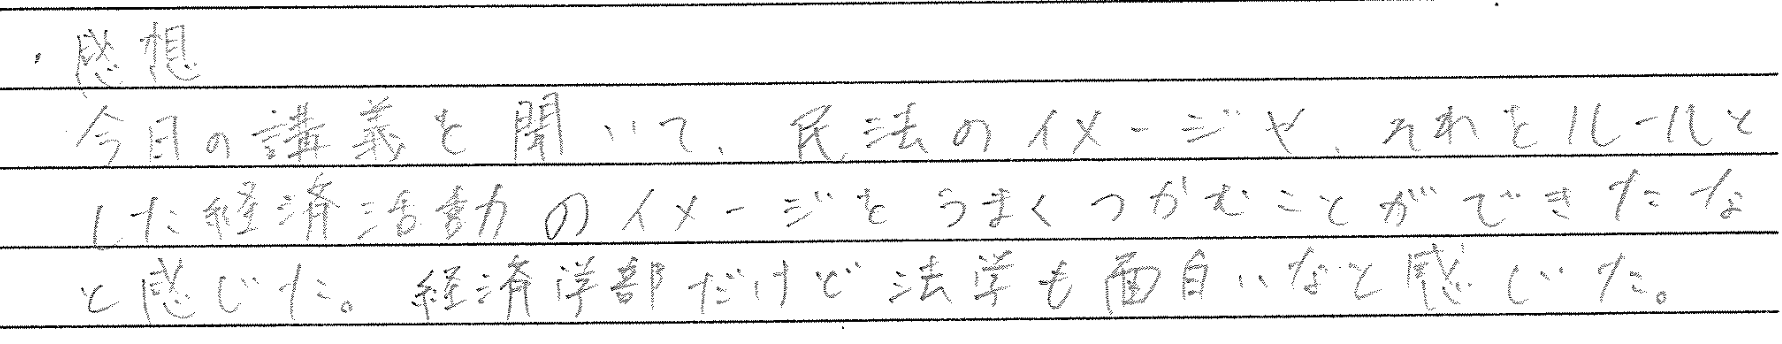 ・感想
今日の講義を聞いて、民法のイメージや、それをルールと
した経済活動のイメージをうまくつかむことができたな
と感じた。経済学部だけど法学も面白いなと感じた。